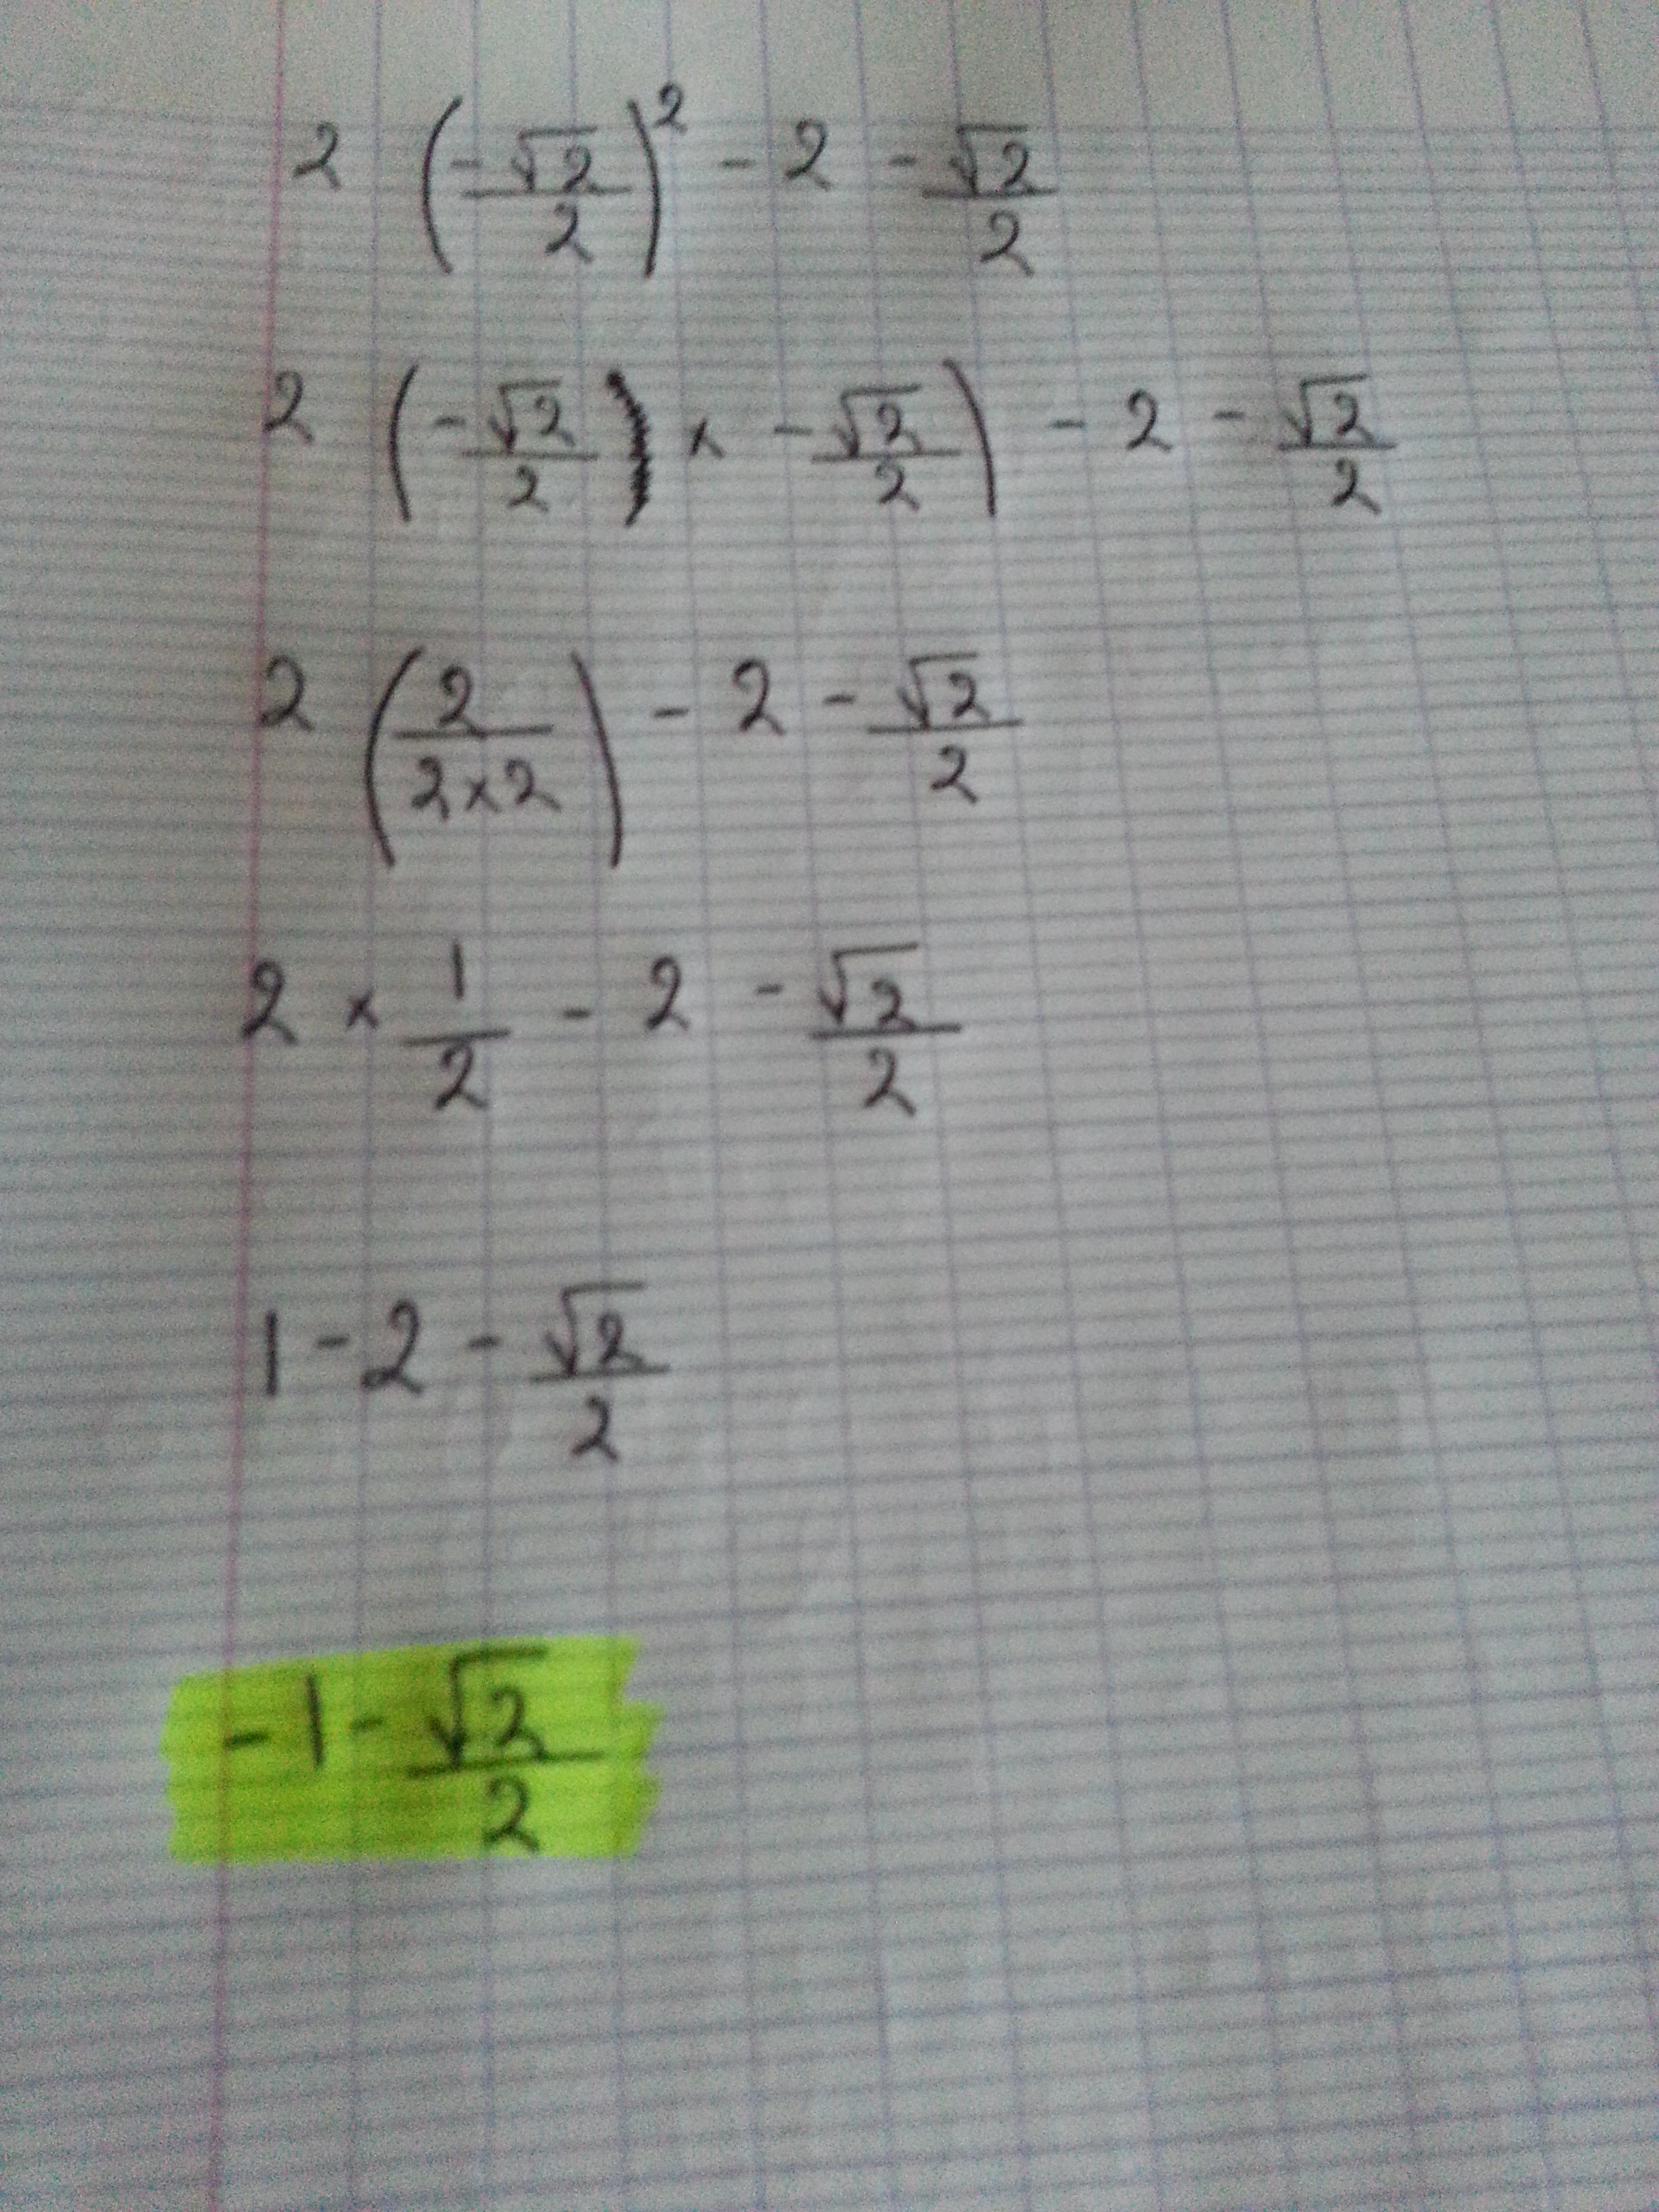 2 (-√2/2)² - 2 - √2/2
2 (-√2/2 × -√2/2) - 2 - √2/2
2 (2/(2×2)) - 2 - √2/2
2 × 1/2 - 2 - √2/2
1 - 2 - √2/2
-1 - √2/2